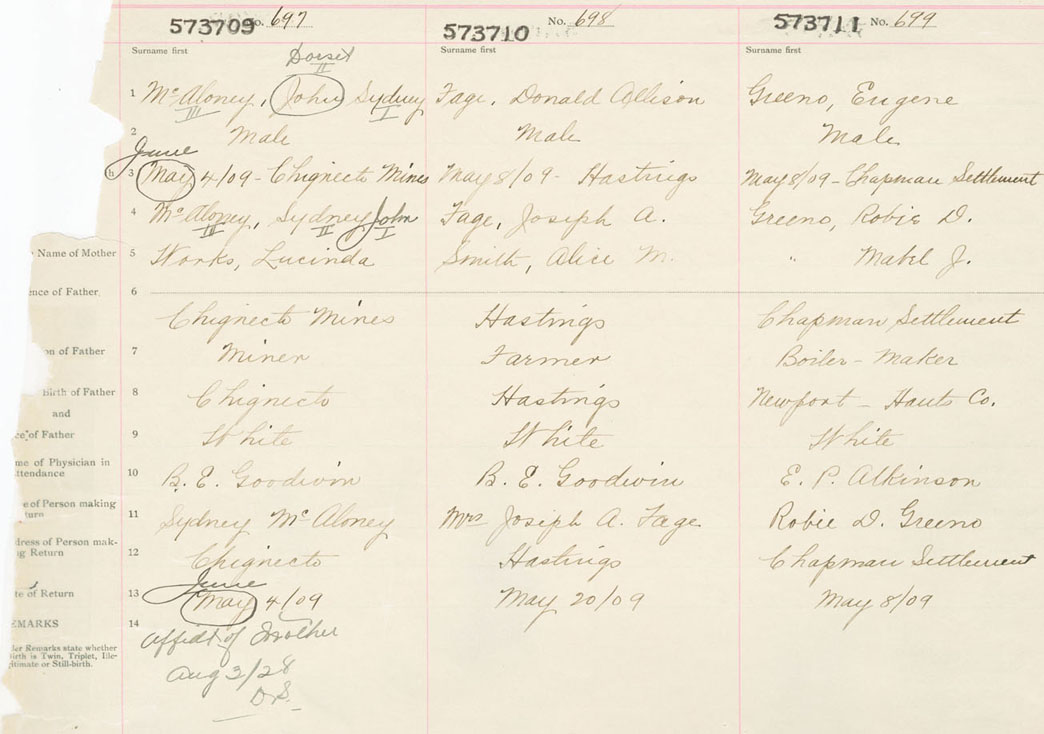 573709 No. 697
573710 No. 698
573711 No. 699
Surname first
Surname first
Surname first
Dorset
II
1 McAloney, John Sydney
III I
Fage, Donald Allison
Greeno, Eugene
2 Male
Male
Male
June
h 3 May 4/09 - Chignecto Mines
May 8/09 - Hastings
May 8/09 - Chapman Settlement
4 McAloney, Sydney John
III II I
Fage, Joseph A.
Greeno, Robie D.
Name of Mother 5 Works, Lucinda
Smith, Alice M.
" Mabel J.
ence of Father. 6
Chignecto Mines
Hastings
Chapman Settlement
on of Father 7 Miner
Farmer
Boiler-Maker
Birth of Father 8 Chignecto
Hastings
Newport - Hants Co.
and
ce of Father 9 White
White
White
me of Physician in
ttendance 10 B. E. Goodwin
B. E. Goodwin
E. P. Atkinson
e of Person making
turn 11 Sydney McAloney
Mrs Joseph A. Fage
Robie D. Greeno
dress of Person mak-
ng Return 12 Chignecto
Hastings
Chapman Settlement
June
te of Return 13 May 4/09
May 20/09
May 8/09
EMARKS 14
der Remarks state whether
Birth is Twin, Triplet, Ille-
gitimate or Still-birth.
affidt of Mother
Aug 3/28
D.S.